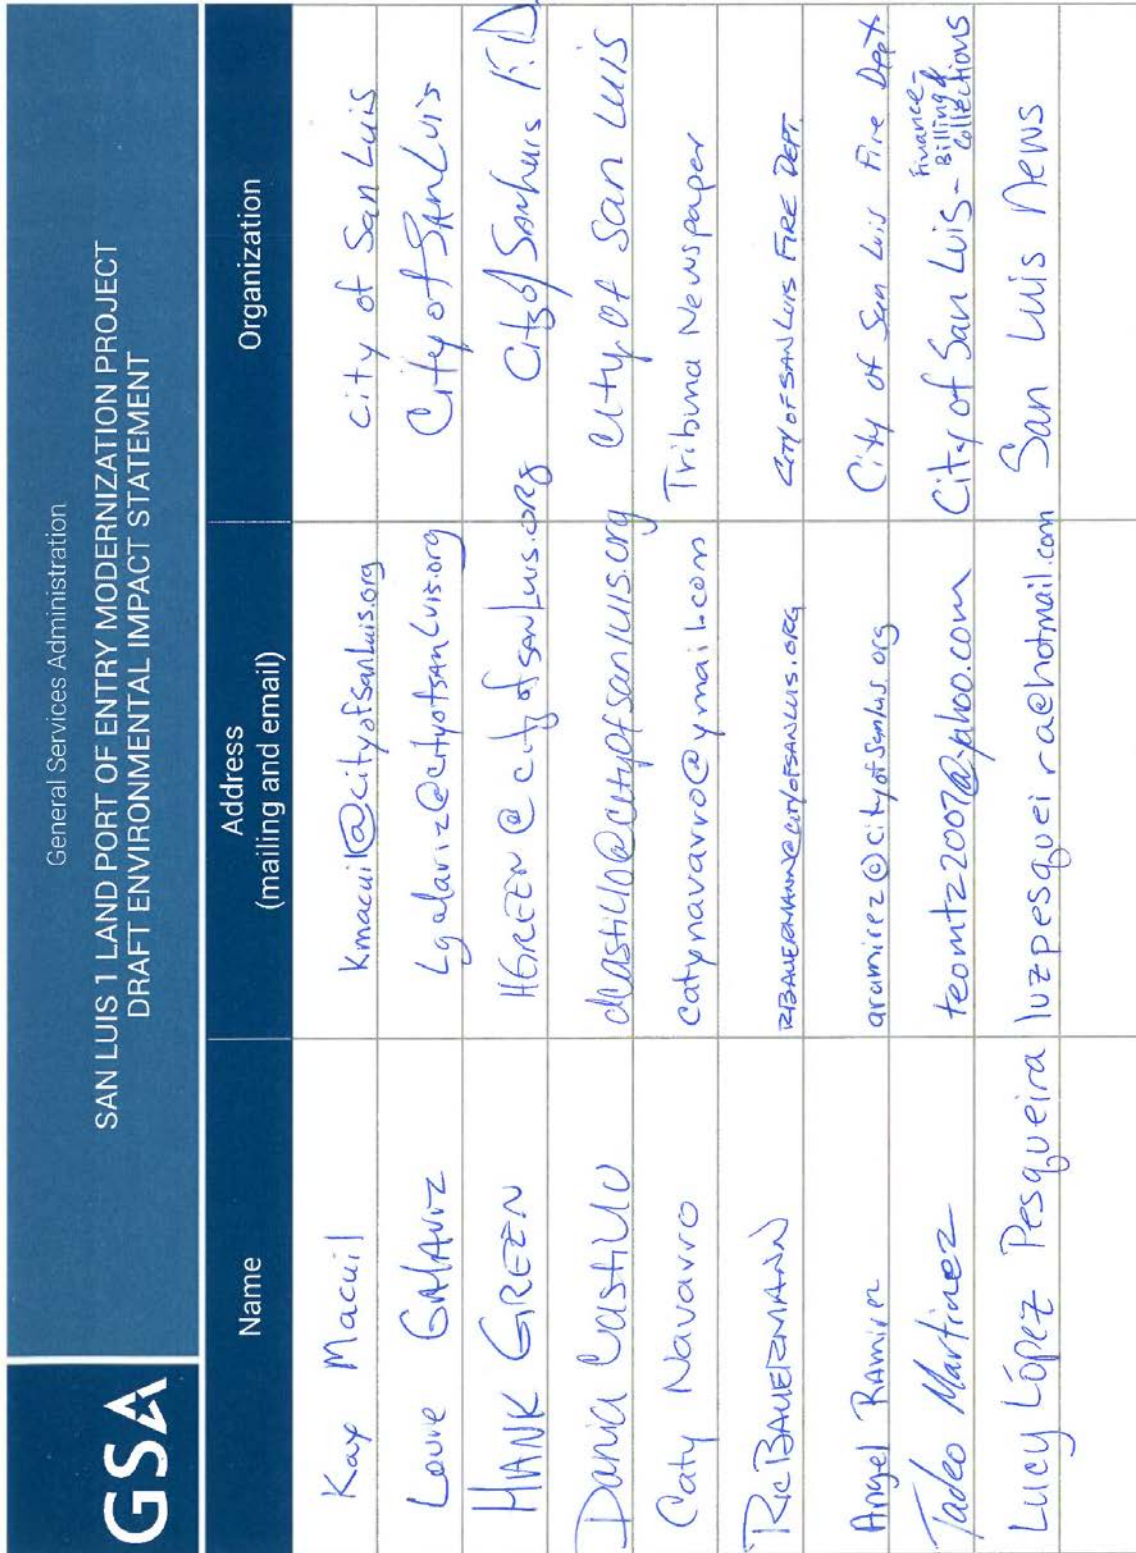 GSA
General Services Administration
SAN LUIS 1 LAND PORT OF ENTRY MODERNIZATION PROJECT
DRAFT ENVIRONMENTAL IMPACT STATEMENT
Name Address Organization
(mailing and email)
Kay Macuil Kmacuil@cityofsanluis.org City of San Luis
Louie GALAVIZ Lgalaviz@cityofsanluis.org City of SAN LUIS
HANK GREEN HGREEN@cityofsanluis.org City of San Luis F.D.
Dania Castillo dcastillo@cityofsanluis.org City of San Luis
Caty Navarro Catynavarro@ymail.com Tribuna Newspaper
RIC BAUERMANN RBAUERMANN@CITYOFSANLUIS.ORG CITY OF SAN LUIS FIRE DEPT.
Angel RAMIREZ aramirez@cityofsanluis.org City of San Luis Fire Dept.
Tadeo Martinez teomtz2007@yahoo.com City of San Luis - Finance-
Billing &
Collections
Lucy López Pesqueira luzpesqueira@hotmail.com San Luis News